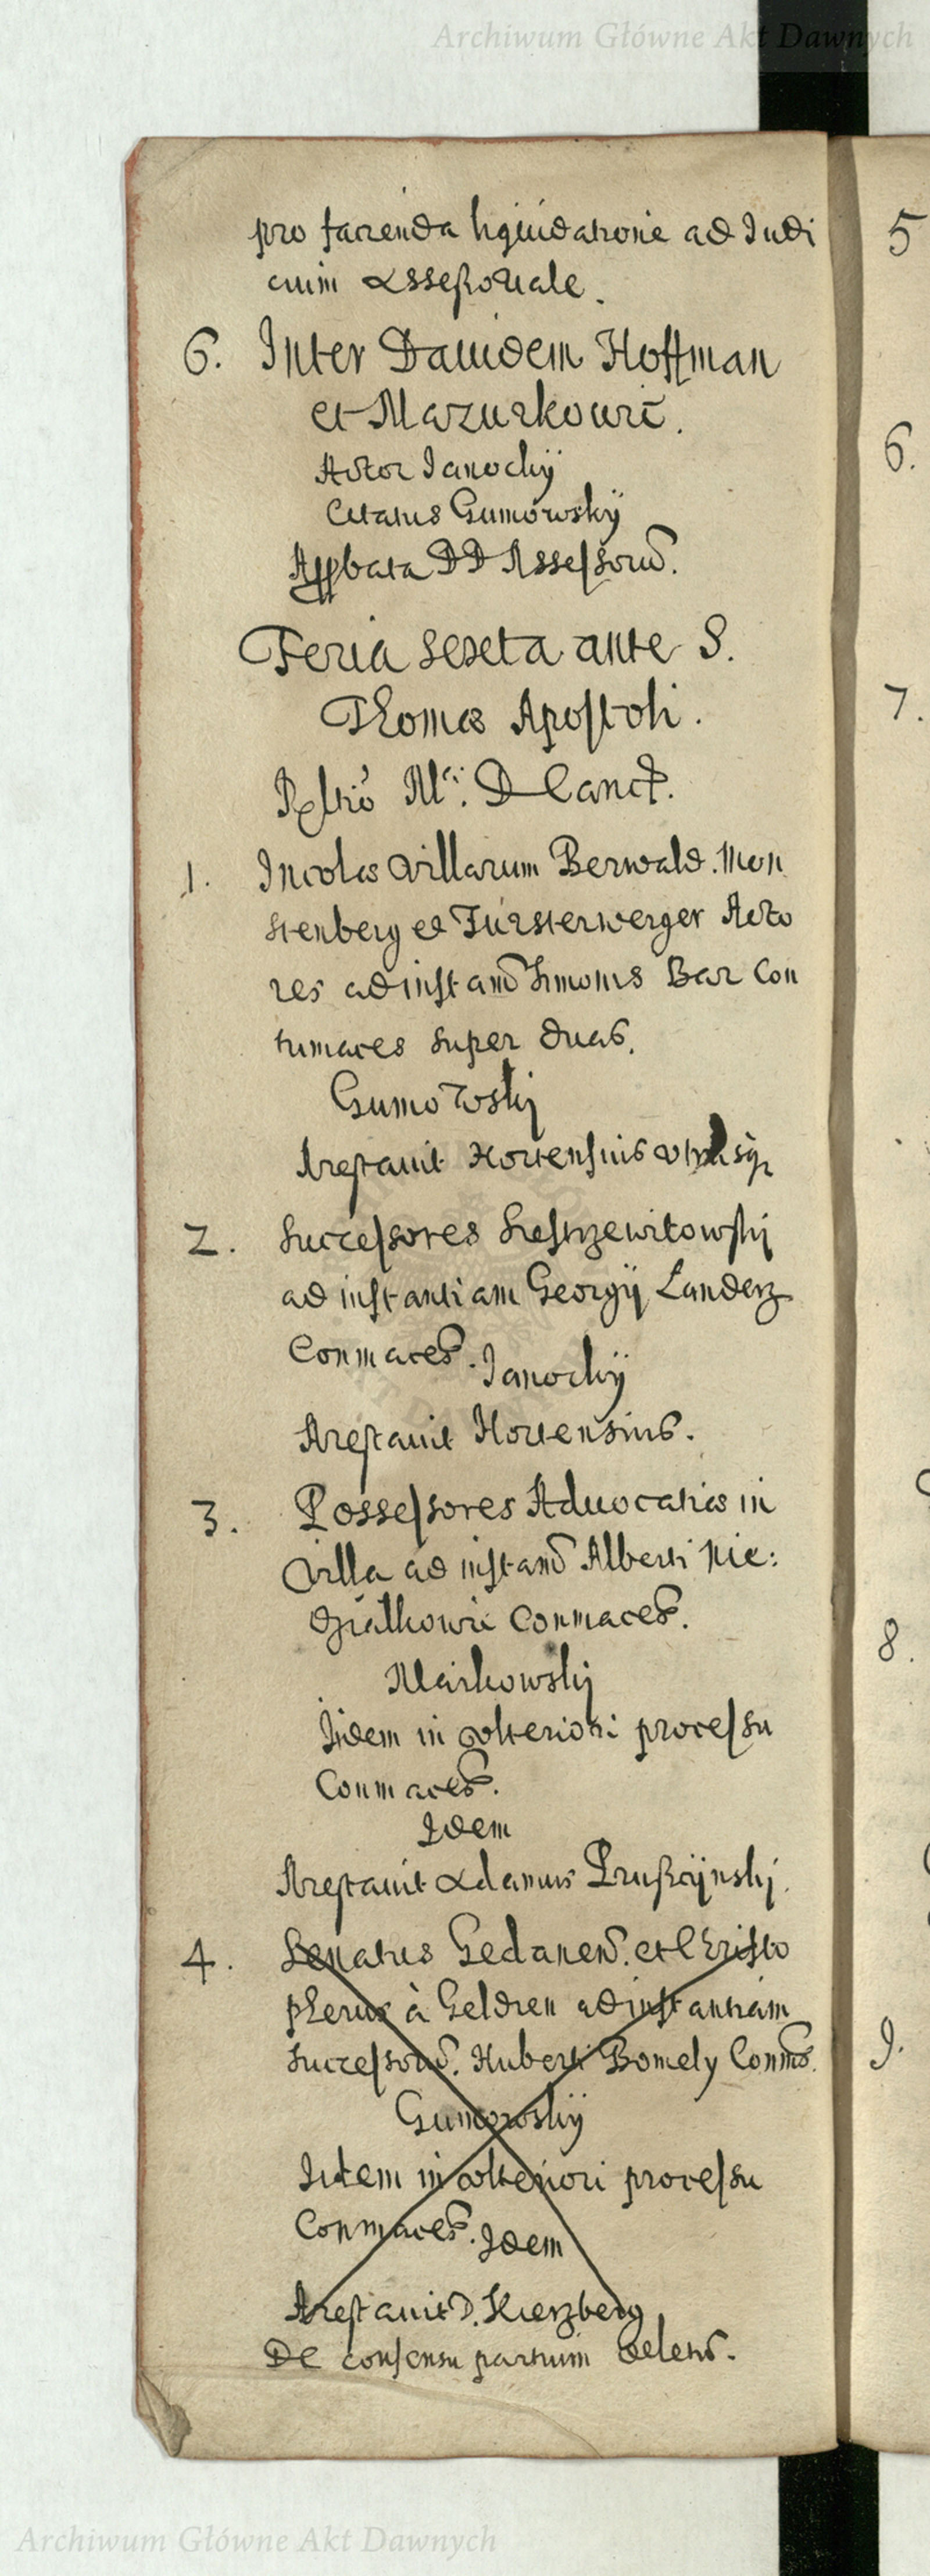 Archiwum Główne Akt Dawnych
pro facienda liquidatione ad Iudi
cium Assessoriale.
6. Inter Dauidem Hoffman
et Mazurkowic.
Actor Janochÿ
Citatus Gumowskÿ
Appbata DD Assessorũ.
Feria sexta ante S.
Thomæ Apostoli.
D Canc
1. Incolæ Villarum Berwald. Mon
stenberg et Fürsterwerger Acto
res ad instanõ Simonis Bar Con
tumaces super duas.
Gumowskij
Arestauit Hortensius utrasq
2. Successores
ad instantiam Georgij Landerz
Conmaces. Janochÿ
Arestauit Hortensius.
3. Possessores Aduocatiæ in
Villa ad instanõ Alberti Nie:
działkowic Conmaces.
Markowskij
Iidem in vlteriori processu
Conmaces.
Idem
Arestauit Adamus Prußcÿnskj.
4. Senatus Gedaneñ. et Christo
pherus à Geldren ad instantiam
Successorũ. Huberti Bomely Conmẽs.
Gumowskÿ
Iidem in vlteriori processu
Conmaces. Idem
Arestauit D. Kierzberg
De consensu partium deletũ.
5
6.
7.
8.
9.
Archiwum Główne Akt Dawnych